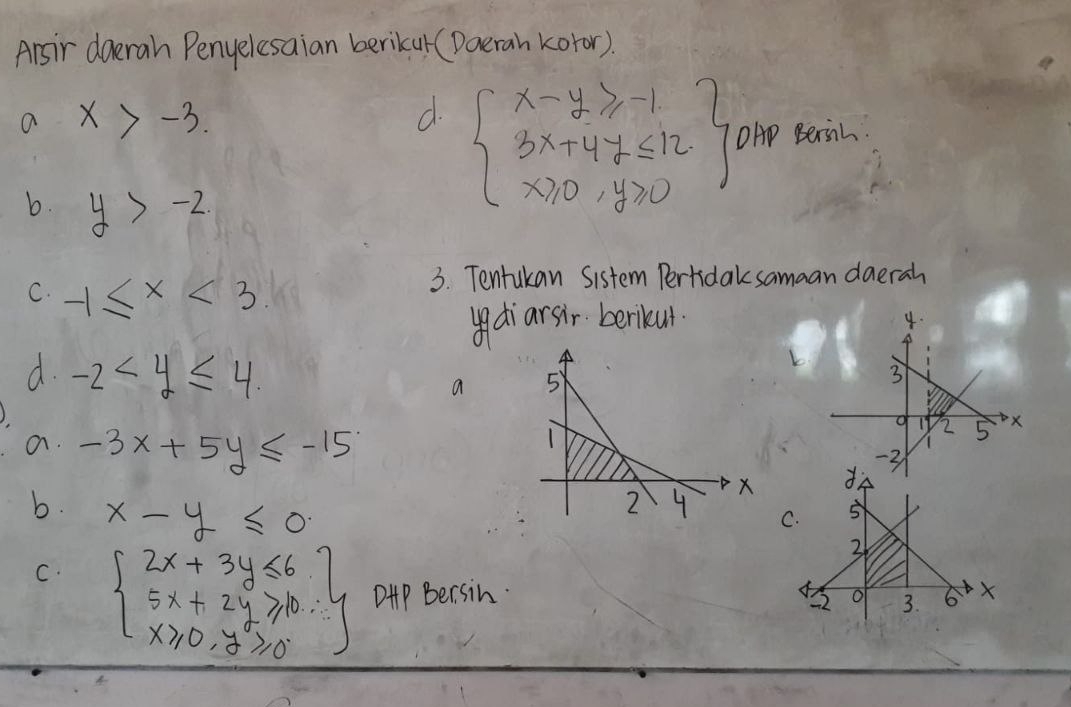 Arsir daerah Penyelesaian berikut (Daerah kotor).
a x > -3.
b. y > -2.
c. -1 ≤ x < 3.
d. -2 < y ≤ 4.
a. -3x + 5y ≤ -15
b. x - y ≤ 0.
c. { 2x + 3y ≤ 6
5x + 2y ≥ 10.
x ≥ 0, y ≥ 0 } DHP Bersih.
d. { x - y ≥ -1.
3x + 4y ≤ 12.
x ≥ 0, y ≥ 0 } DHP Bersih.
3. Tentukan Sistem Pertidaksamaan daerah
yg di arsir berikut.
a
5
1
2 4 x
b.
y
3
0 1 2 5 x
-2
c.
y
5
2
-2 0 3. 6 x